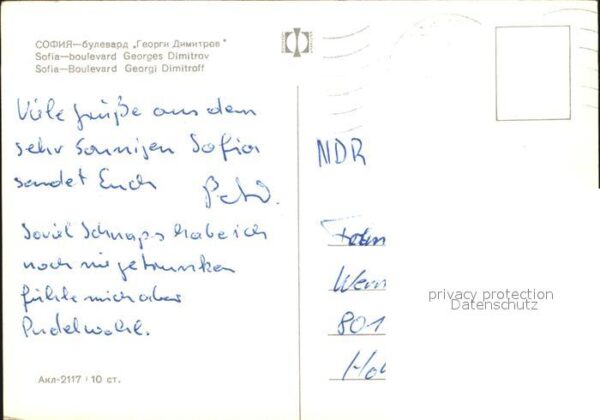 СОФИЯ—булевард „Георги Димитров"
Sofia—boulevard Georges Dimitrov
Sofia—Boulevard Georgi Dimitroff
Viele Grüße aus dem
sehr sonnigen Sofia
sendet Euch
Soviel Schnaps habe ich
noch nie getrunken
fühle mich aber
Pudelwohl.
Акл-2117 / 10 ст.
NDR
Wern
801
privacy protection
Datenschutz